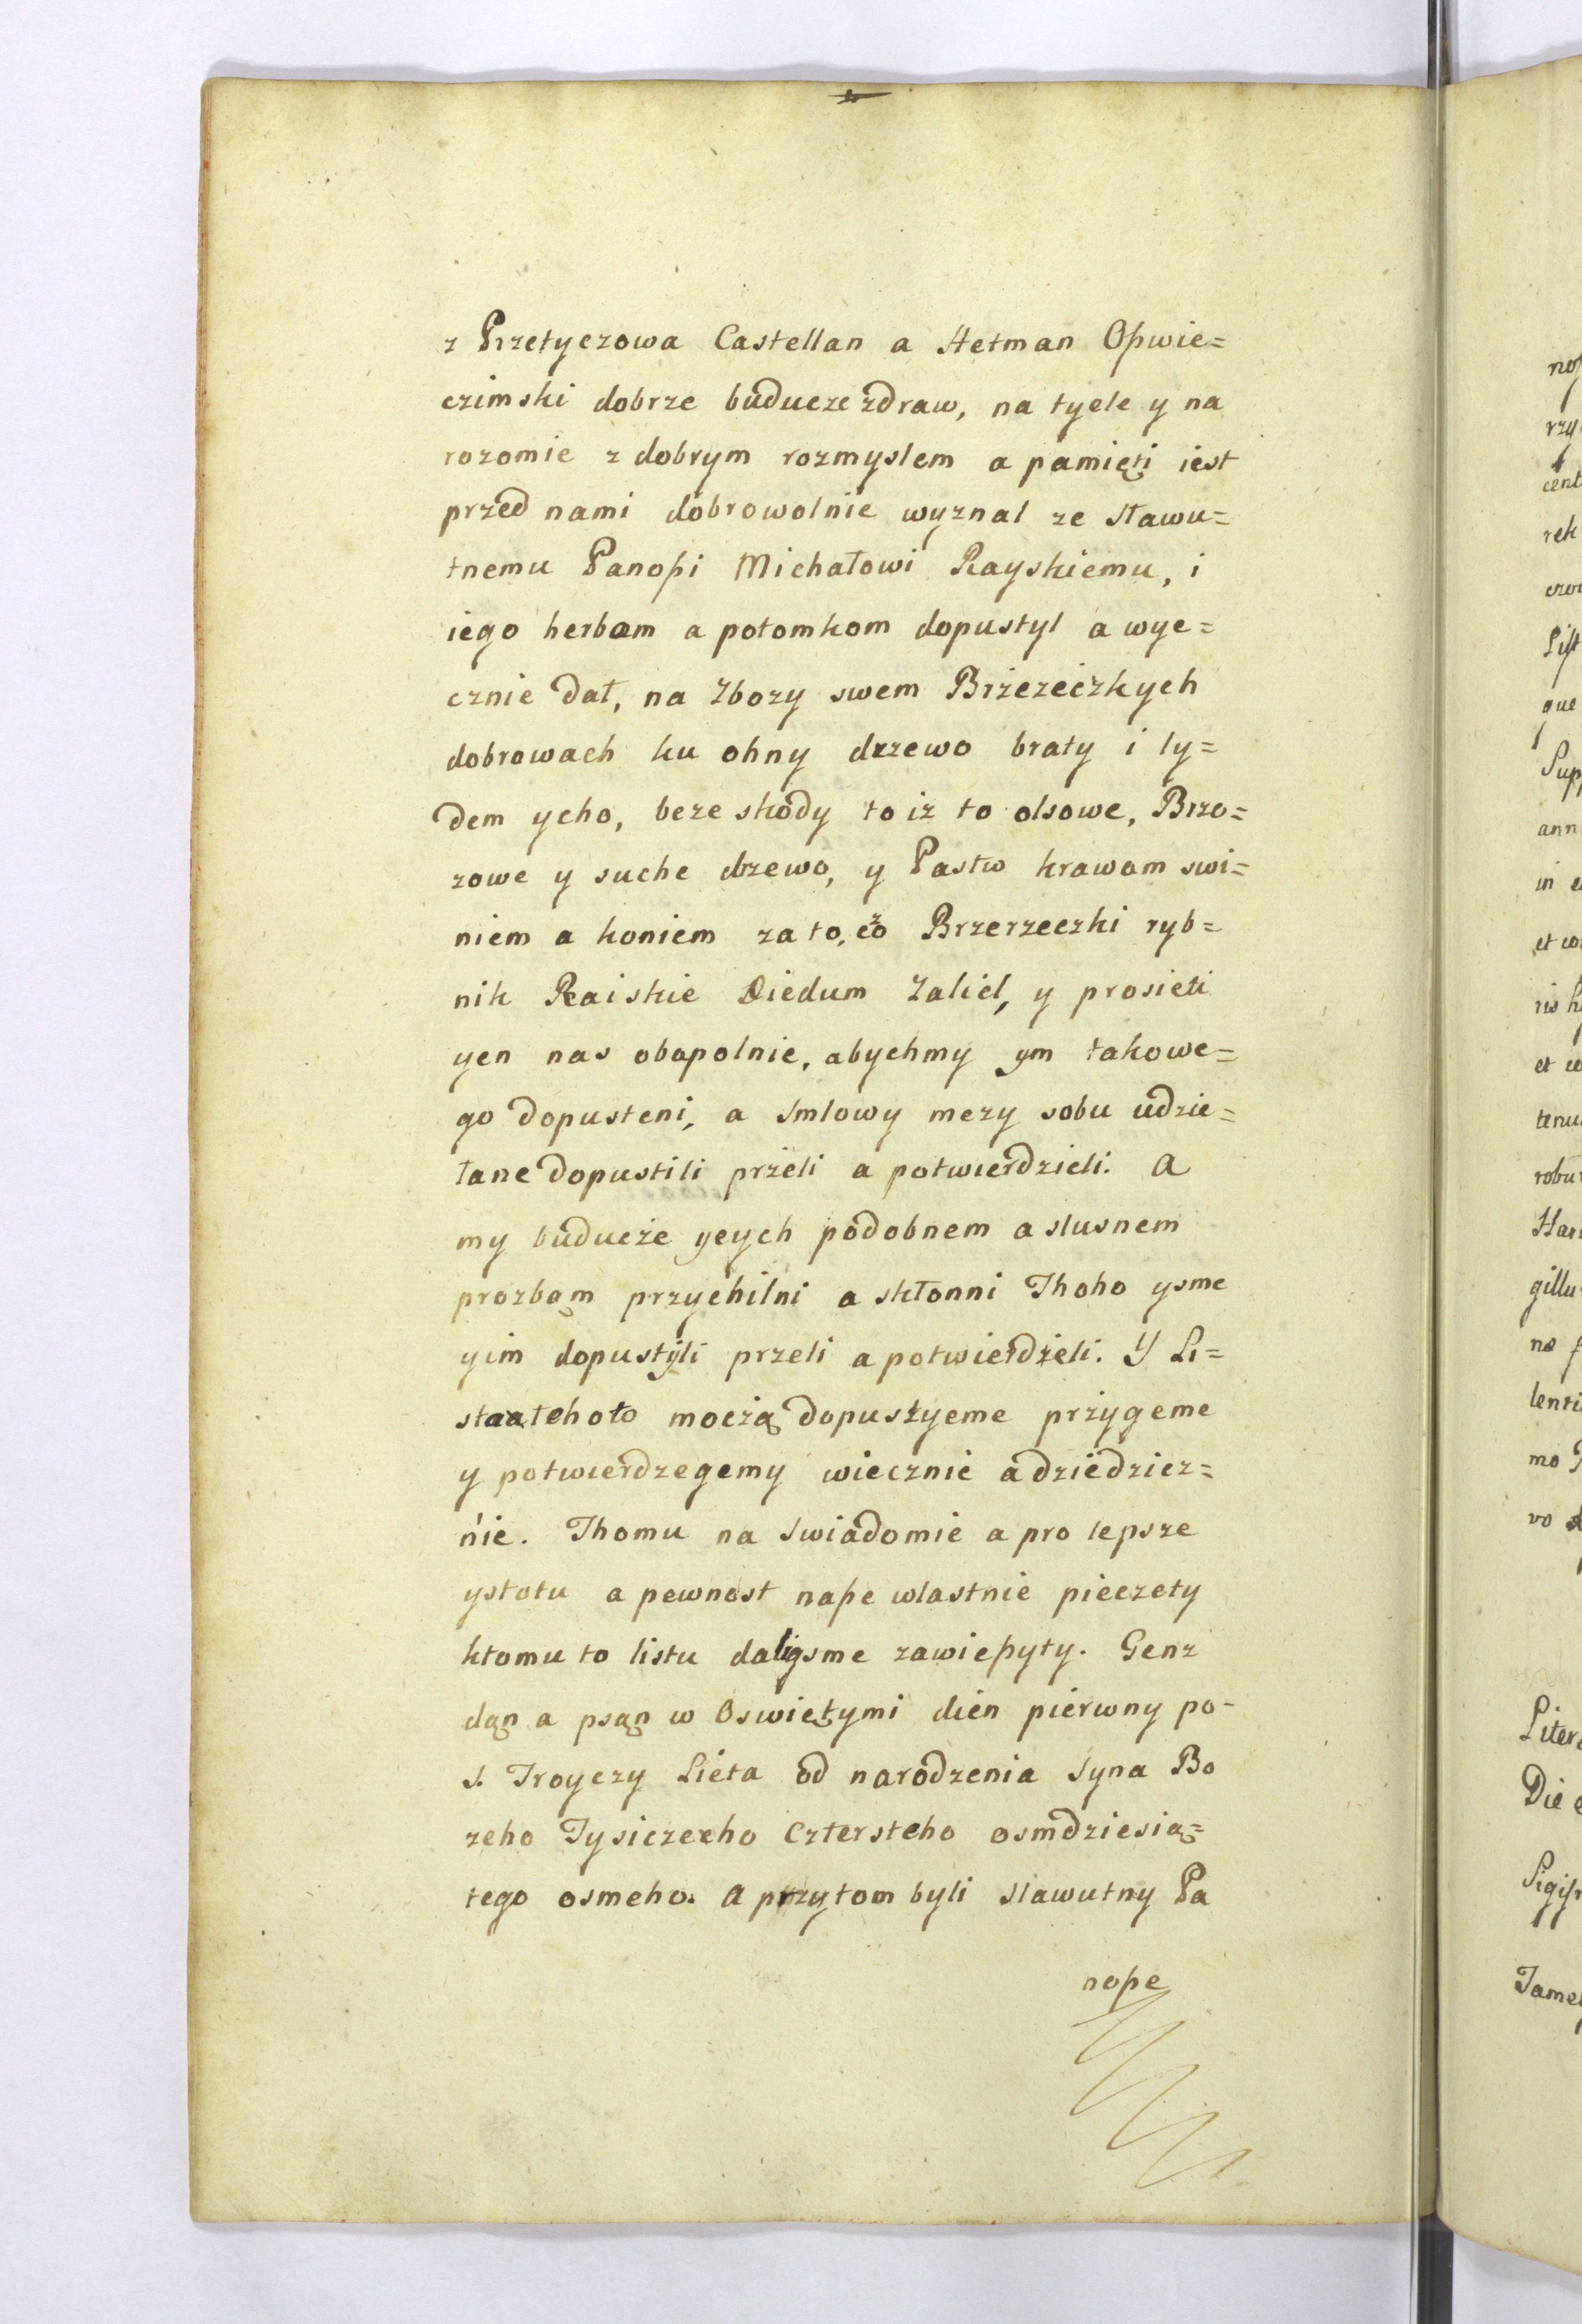 z Przetyczowa Castellan a Hetman Oßwie=
czimski dobrze buducze zdraw, na tyele y na
rozomie z dobrym rozmyslem a pamięti iest
przed nami dobrowolnie wyznal ze Sławu=
tnemu Panoßi Michałowi Rayskiemu, i
iego herbam a potomkom dopustyl a wye=
cznie dał, na Zbozy swem Brzezeczkych
dobrowach ku ohny drzewo braty i ly=
dem ycho, beze skody to iz to olsowe, Brzo=
zowe y suche drzewo, y Pastw krawam swi=
niem a koniem za to, cż Brzerzeczki ryb=
nik Raiskie Diedum Zaliel, y prosieli
yen nas obapolnie, abychmy ym takowe=
go dopusteni, a Smlowy mezy sobu udzie=
łane dopustili przeli a potwierdzieli. A
my buducze yeych podobnem a slusnem
prozbąm przychilni a skłonni Thoho ysme
yim dopustyli przeli a potwierdzeli. Y Li=
staatohoto moczą dopuszyeme przygeme
y potwierdzegemy wiecznie a dziedzicz=
nie. Thomu na Swiadomie a pro lepsze
ystotu a pewnost naße wlastnie pieczety
ktomu to listu dalysme zawießyty. Genz
dąn a psąn w Oswiętymi dien pierwny po-
S. Troyczy Lieta od narodzenia Syna Bo
zeho Tysiczecho Czterstcho osmdziesią=
tego osmeho. A przytom byli slawutny Pa
noße